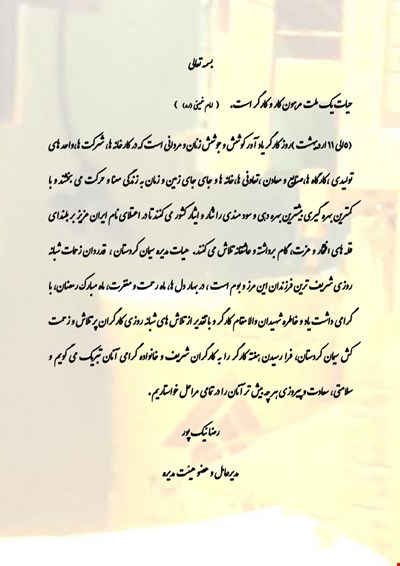 بسمه تعالی
حیات یک ملت مرهون کار و کارگر است. ( امام خمینی (ره) )
(5 الی 11 اردیبهشت) روز کارگر یاد آور کوشش و جوشش زنان و مردانی است که در کارخانه ها، شرکت ها، واحد های
تولیدی ، کارگاه ها، صنایع و معادن ، تعاونی ها، خانه ها و جای جای زمین و زمان به زندگی معنا و حرکت می بخشند و با
کمترین بهره گیری بیشترین بهره دهی و سود مندی را نثار و ایثار کشور می کنند تا در اعتلای نام ایران عزیز بر بلندای
قله های افتخار و عزت، گام برداشته و عاشقانه تلاش می کنند. هیات مدیره سیمان کردستان ، قدردان زحمات شبانه
روزی شریف ترین فرزندان این مرز و بوم است ، در بهار دل ها، ماه رحمت و مغفرت، ماه مبارک رمضان، با
گرامی داشت یاد و خاطره شهیدان والا مقام کارگر و با تقدیر از تلاش های شبانه روزی کارگران پر تلاش و زحمت
کش سیمان کردستان، فرا رسیدن هفته کارگر را به کارگران شریف و خانواده گرامی آنان تبریک می گویم و
سلامتی، سعادت و پیروزی هر چه بیش تر آنان را در تمامی مراحل خواستاریم.
رضا نیک پور
مدیرعامل و عضو هیئت مدیره